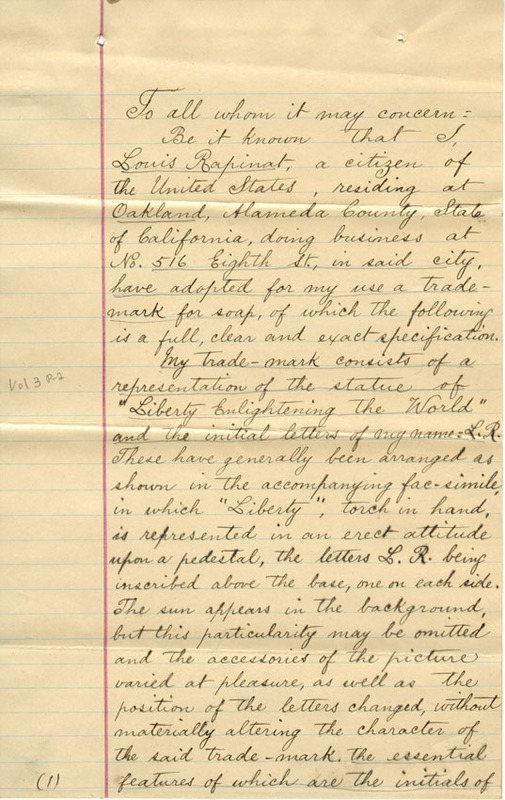 To all whom it may concern:
Be it known that I,
Louis Rapinat, a citizen of
the United States, residing at
Oakland, Alameda County, State
of California, doing business at
No. 516 Eighth St., in said city,
have adopted for my use a trade-
mark for soap, of which the following
is a full, clear and exact specification.
My trade-mark consists of a
representation of the statue of
"Liberty Enlightening the World"
and the initial letters of my name: L.R.
These have generally been arranged as
shown in the accompanying fac-simile,
in which "Liberty", torch in hand,
is represented in an erect attitude
upon a pedestal, the letters L. R. being
inscribed above the base, one on each side.
The sun appears in the background,
but this particularity may be omitted
and the accessories of the picture
varied at pleasure, as well as the
position of the letters changed, without
materially altering the character of
the said trade-mark, the essential
features of which are the initials of
Vol 3 P2
(1)